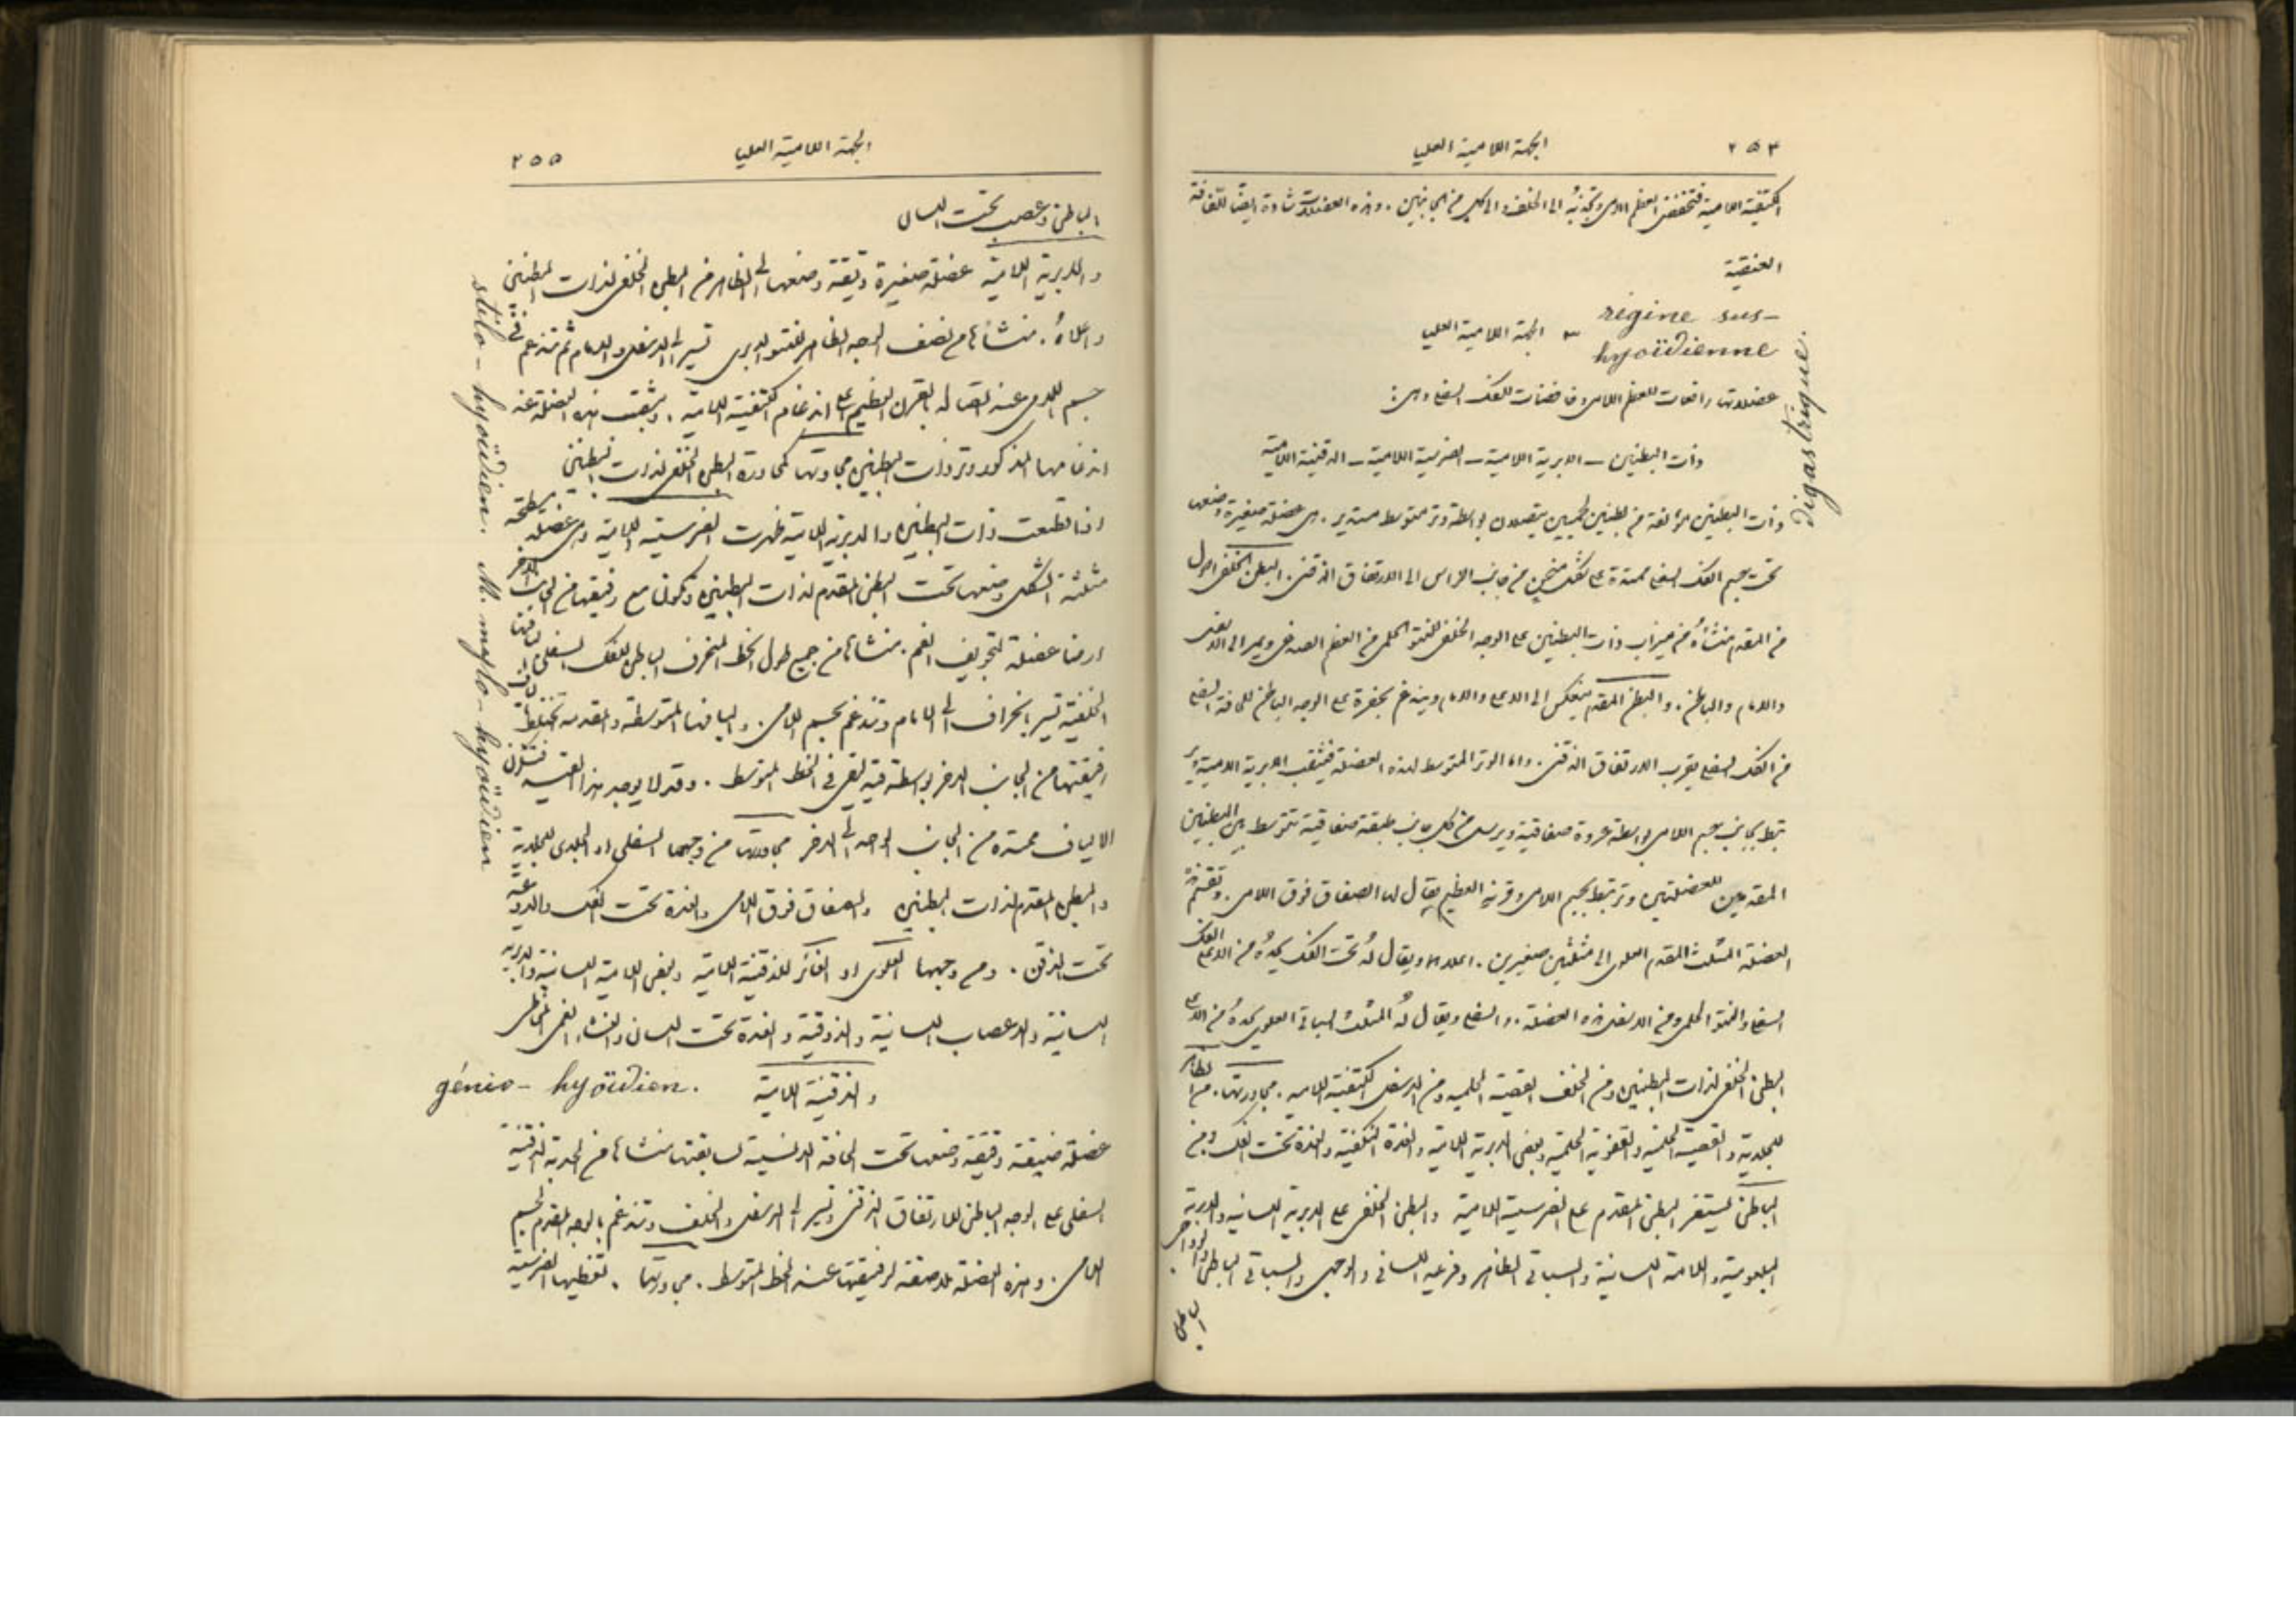 ٢٥٤ الجهة اللامية العليا
الكتفية اللامية فتخفض العظم اللامي وتجذبه الى الخلف والى كل من الجانبين . وهذه العضلات شادة ايضا للفافة
العنقية
régine sus-
hyoïdienne
٣ الجهة اللامية العليا
digastrique
عضلاتها رافعات للعظم اللامي وخافضات للفك السفلي وهي :
ذات البطنين – الابرية اللامية – الضرسية اللامية – الذقنية اللامية
وذات البطنين مؤلفة من بطنين لحميين يتصلان بواسطة وتر متوسط مستدير . هي عضلة صغيرة وضعها
تحت جسم الفك السفلي ممتدة على شكل منحن من جانب الراس الى الارتفاق الذقني . البطن الخلفي اطول
من المقدم منشأه من ميزاب ذات البطنين على الوجه الخلفي للنتو الحلمي من العظم الصدغي ويمر الى الاسفل
والامام والباطن . والبطن المقدم ينعكس الى الاعلى والامام ويندغم بحفرة على الوجه الباطن للحافة السفلى
من الفك السفلي بقرب الارتفاق الذقني . واما الوتر المتوسط لهذه العضلة فيثقب الابرية اللامية وير
تبط بجانب جسم اللامي بواسطة عروة صفاقية ويرسل من كل جانب طبقة صفاقية تتوسط بين البطنين
المقدمين للعضلتين وترتبط بجسم اللامي وقرنه العظيم يقال لها الصفاق فوق اللامي . وتقسم هذه
العضلة المثلث المقدم العلوي الى مثلثين صغيرين . اعلاهما ويقال له تحت الفك يحده من الاعلى الفك
السفلي والنتو الحلمي ومن الاسفل هذه العضلة . والسفلي ويقال له المثلث السباتي العلوي يحده من الاعلى
البطن الخلفي لذات البطنين ومن الخلف القصية الحلمية ومن الاسفل الكتفية اللامية . مجاورتها . من الظاهر
للجلدية والقصية الحلمية والقفوية الحلمية وبعض الابرية اللامية والغدة النكفية والغدة تحت الفك ومن
الباطن يستقر البطن المقدم على الضرسية اللامية والبطن الخلفي على الابرية اللسانية والابرية
البلعومية واللامية اللسانية والسباتي الظاهر وفرعيه اللساني والوجهي والسباتي الباطن والوداجي
الباطن
الجهة اللامية العليا ٢٥٥
الباطن وعصب تحت اللسان
stilo-hyoïdien.
والابرية اللامية عضلة صغيرة دقيقة وضعها الى الظاهر من البطن الخلفي لذات البطنين
واعلاه . منشأها من نصف الوجه الظاهر للنتو الابري تسير الى الاسفل والامام ثم تندغم في
جسم اللامي عند اتصاله بالقرن العظيم على اندغام الكتفية اللامية . ويثقب هذه العضلة عند
اندغامها المذكور وتر ذات البطنين مجاورتها كمجاورة البطن الخلفي لذات البطنين
M. mylo-hyoïdien
اذا قطعت ذات البطنين والابرية اللامية ظهرت الضرسية اللامية وهي عضلة مسطحة
مثلثة الشكل وضعها تحت البطن المقدم لذات البطنين وتكون مع رفيقتها من الجانب الاخر
ارضا عضلة لتجويف الفم . منشأها من جميع طول الخط المنحرف الباطن للفك السفلي اليافها
الخلفية تسير بانحراف الى الامام وتندغم بجسم اللامي . واليافها المتوسطة والمقدمة تختلط بالياف
رفيقتها من الجانب الاخر بواسطة قدة ليفي في الخط المتوسط . وقد لا يوجد هذا القسم فتكون
الالياف ممتدة من الجانب الواحد الى الاخر مجاورتها من وجهها السفلي او الجلدي للجلدية
والبطن المقدم لذات البطنين والصفاق فوق اللامي والغدة تحت الفك والاوعية
تحت الذقن . ومن وجهها العلوي او الغائر للذقنية اللامية وبعض اللامية اللسانية والابرية
اللسانية والاعصاب اللسانية والذوقية والغدة تحت اللسان والغشاء الفمي المخاطي
والذقنية اللامية génio-hyoïdien.
عضلة ضيقة دقيقة وضعها تحت الحافة الانسية لسابقتها منشأها من الحدبة الذقنية
السفلى على الوجه الباطن للارتفاق الذقني وتسير الى الاسفل والخلف وتندغم بالوجه المقدم لجسم
اللامي . وهذه العضلة ملاصقة لرفيقتها عند الخط المتوسط . مجاورتها . تغطيها الضرسية